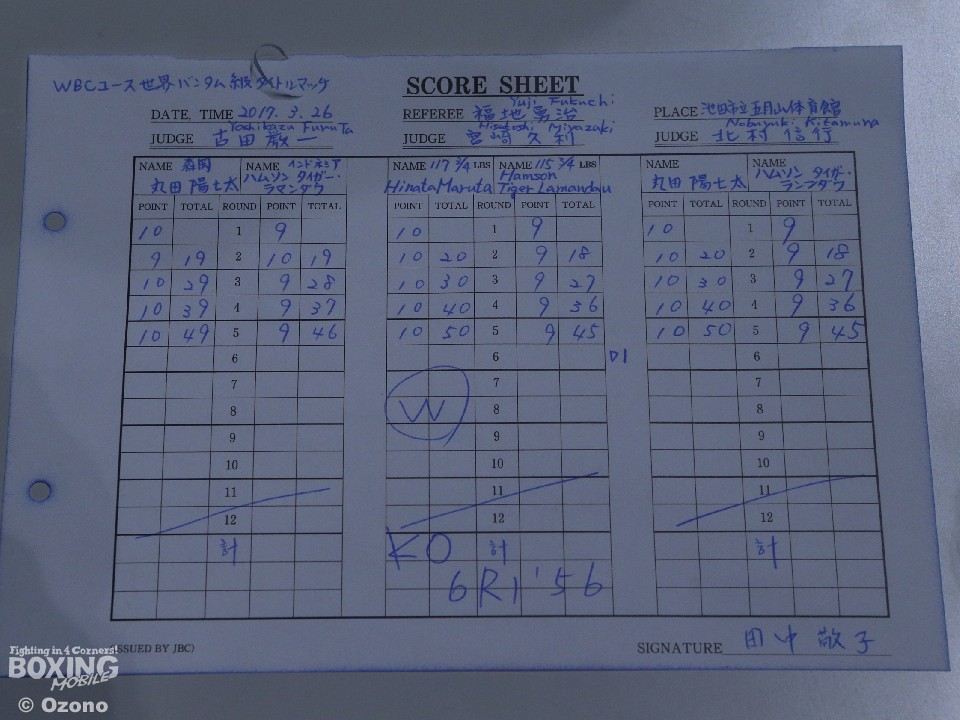 WBCユース世界バンタム級タイトルマッチ
SCORE SHEET
DATE, TIME 2017. 3. 26
REFEREE 福地勇治 Yuji Fukuchi
PLACE 池田市立五月山体育館
JUDGE 古田 Yoshikazu Furuta
JUDGE 宮崎久利 Hisatoshi Miyazaki
JUDGE 北村信行 Nobuyuki Kitamura
NAME 森岡 NAME インドネシア
丸田 陽七太 ハムソン タイガー・ラマンダウ
NAME 117 3/4 LBS NAME 115 3/4 LBS
Hinata Maruta Hamson Tiger Lamandau
NAME NAME
丸田 陽七太 ハムソン タイガー・
POINT TOTAL ROUND POINT TOTAL POINT TOTAL ROUND POINT TOTAL POINT TOTAL ROUND POINT TOTAL
10 1 9 10 1 9 10 1 9
9 19 2 10 19 10 20 2 9 18 10 20 2 9 18
10 29 3 9 28 10 30 3 9 27 10 30 3 9 27
10 39 4 9 37 10 40 4 9 36 10 40 4 9 36
10 49 5 9 46 10 50 5 9 45 10 50 5 9 45
6 6 D1 6
7 7 7
8 W 8 8
9 9 9
10 10 10
11 11 11
12 12 12
計 KO 計 計
6R1'56
ISSUED BY JBC)
SIGNATURE 田中 敬子
Fighting in 4 Corners!
BOXING
MOBILE
© Ozono